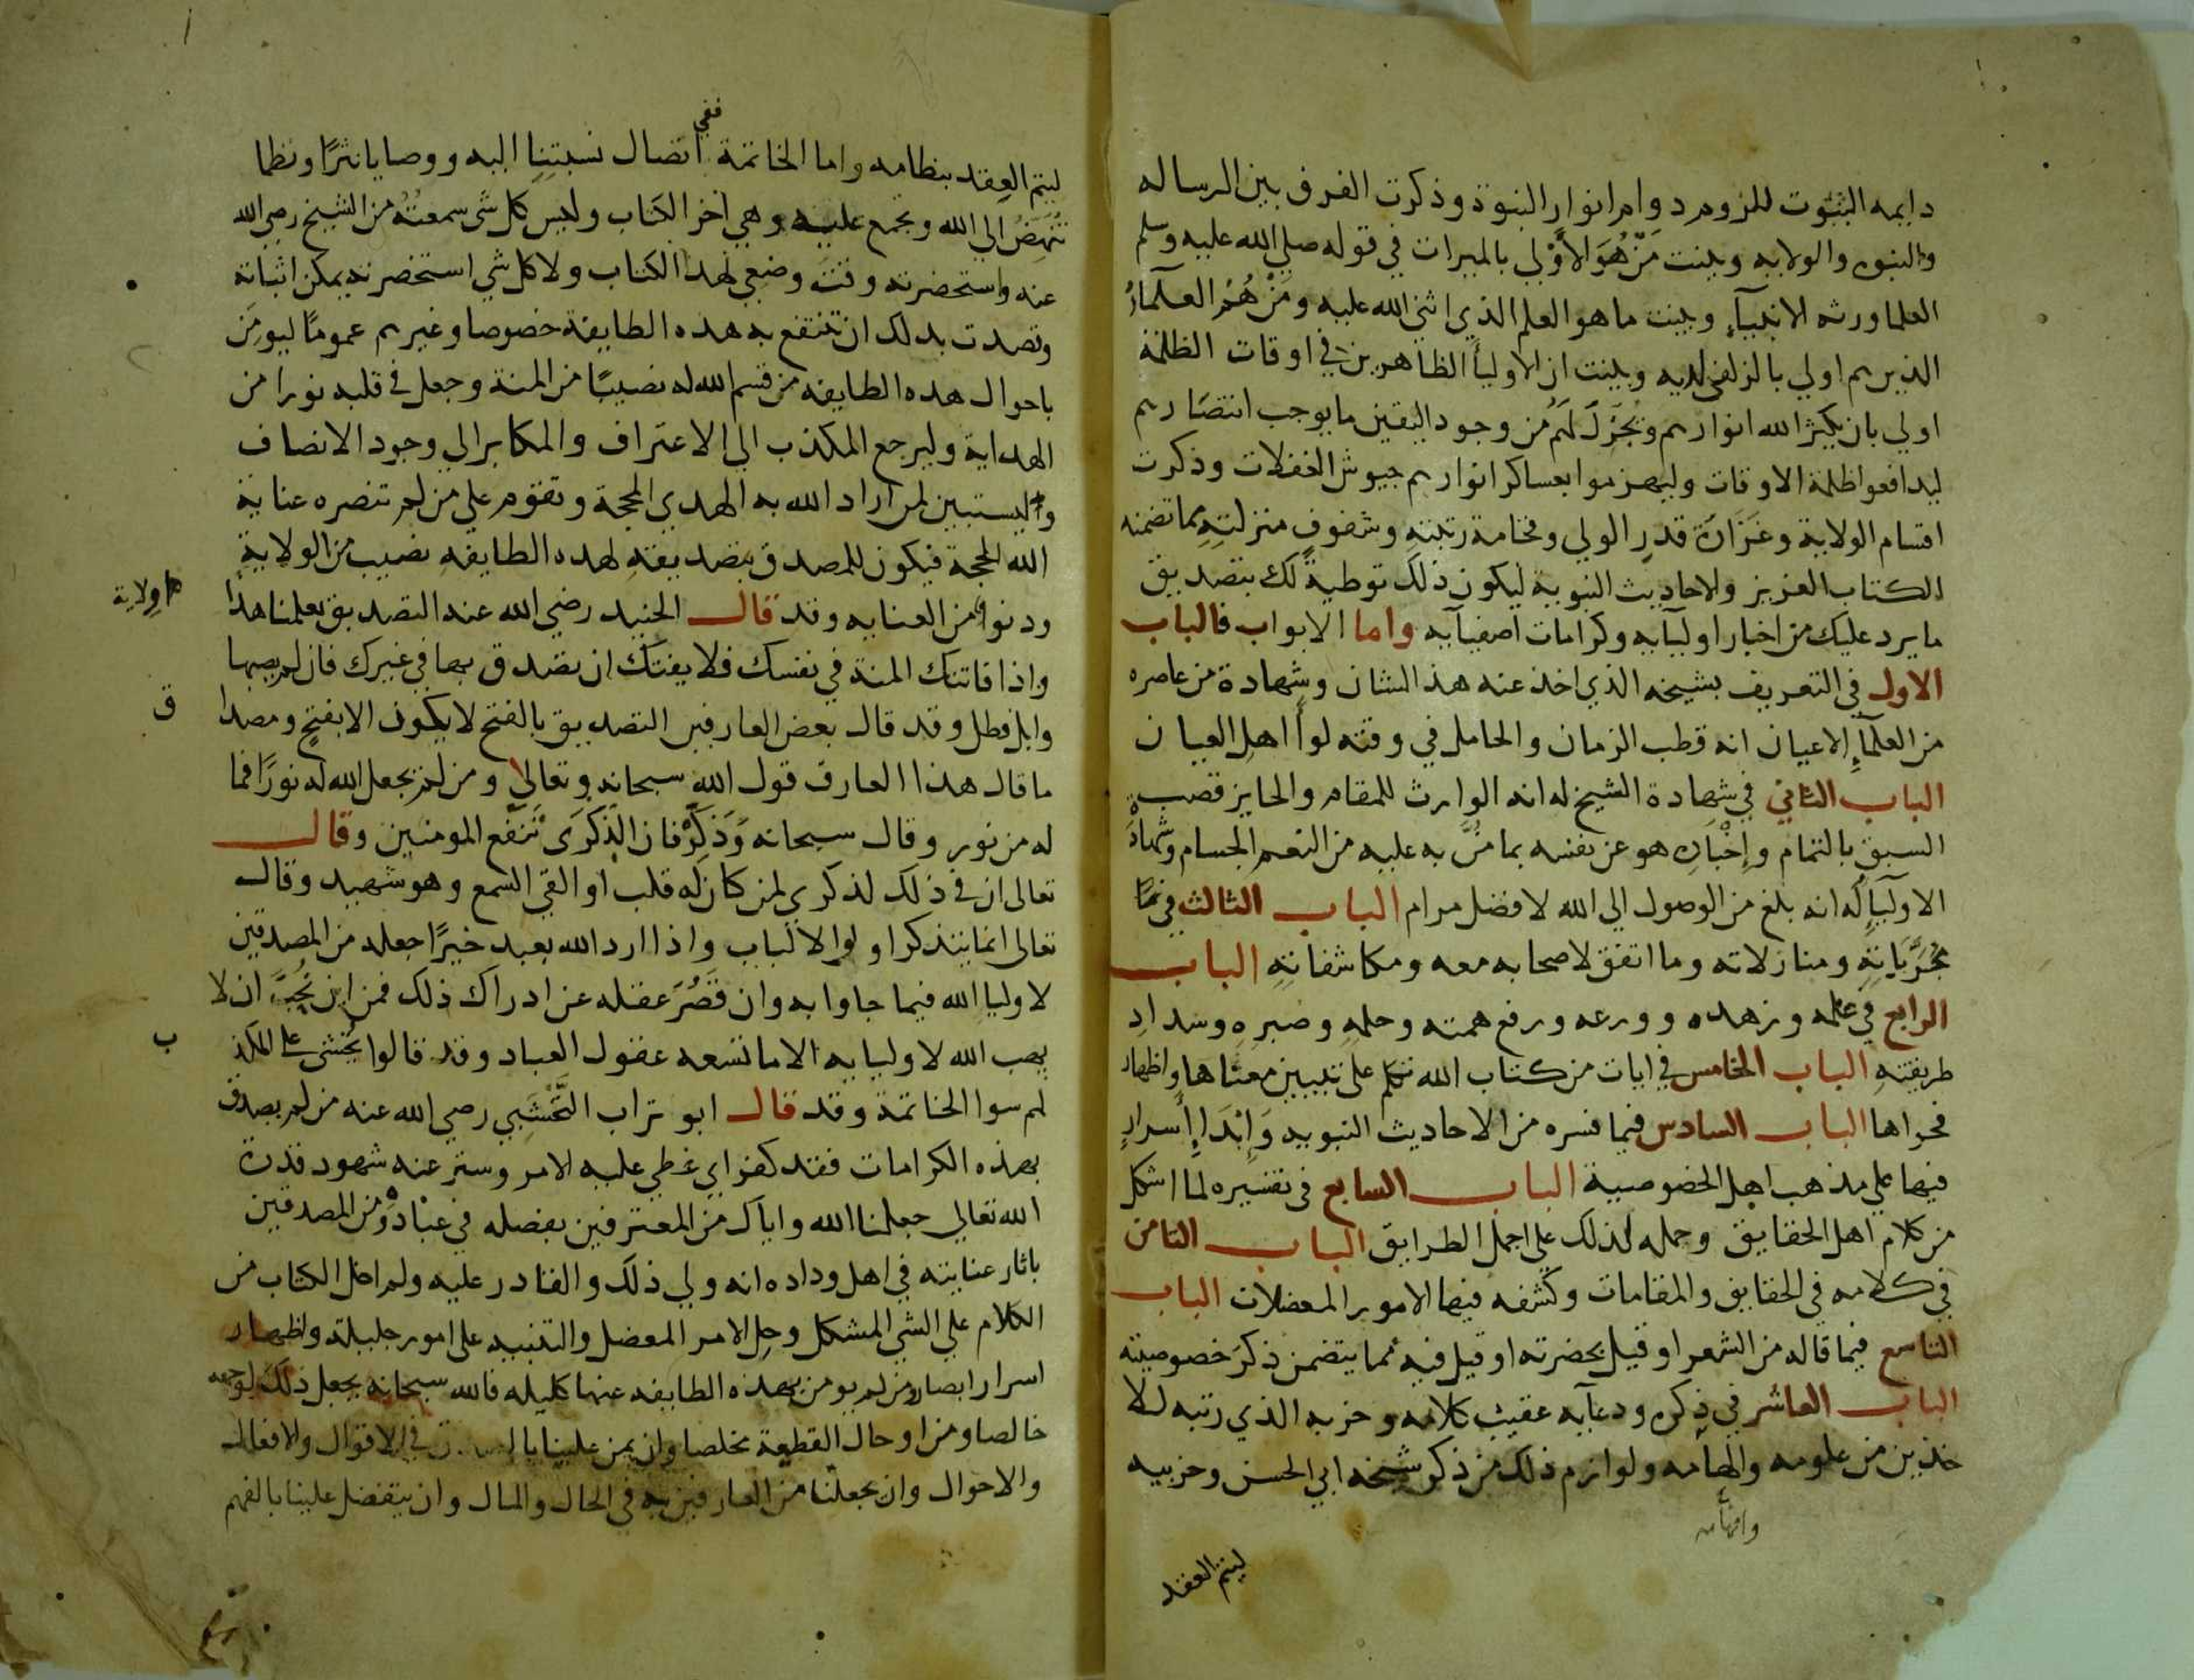 دايمه الثبوت للزوم دوام انوار النبوة وذكرت الفرق بين الرساله
والنبوه والولايه وبينت من هو الأولي بالميراث في قوله صلي الله عليه وسلم
العلما ورثه الانبيآء وبينت ما هو العلم الذي اثني الله عليه ومن هُم العلمآء
الذين هم اولي بالزلفي لديه وبينت ان الاوليأ الظاهرين في اوقات الظلمة
اولي بان يكثر الله انوارهم ويُجزلَ لهم من وجود اليقين ما يوجب انتصارهم
ليدافعوا ظلمة الاوقات وليهزموا بعساكر انوارهم جيوش الغفلات وذكرت
اقسام الولاية وغزارة قدر الولي وفخامة رتبته وشفوف منزلته بما تضمنه
الكتاب العزيز والاحاديث النبوية ليكون ذلك توطيةً لك بتصديق
ما يرد عليك من اخبار اوليآيه وكرامات اصفيآيه واما الابواب فالباب
الاول في التعريف بشيخه الذي اخذ عنه هذ الشان وشهادة من عاصره
من العلمآء الاعيان انه قطب الزمان والحامل في وقته لوأ اهل العيان
الباب الثاني في شهادة الشيخ له انه الوارث للمقام والحايز قصبة
السبق بالتمام وإخباره هو عن نفسه بما مُنّ به عليه من النعم الجسام وشهادة
الاوليآ له انه بلغ من الوصول الي الله لافضل مرام الباب الثالث في
مجرَّباته ومنازلاته وما اتفق لاصحابه معه ومكاشفاته الباب
الرابع في علمه وزهده وورعه ورفع همته وحلمه وصبره وسداد
طريقته الباب الخامس في ايات من كتاب الله تكلم علي تبيين معناها واظهار
فحواها الباب السادس فيما فسره من الاحاديث النبويه وابدا اسرار
فيها علي مذهب اهل الخصوصية الباب السابع في تفسيره لما اشكل
من كلام اهل الحقايق وحمله لذلك علي اجمل الطرايق الباب الثامن
في كلامه في الحقايق والمقامات وكشفه فيها الامور المعضلات الباب
التاسع فيما قاله من الشعر او قيل بحضرته او قيل فيه مما يتضمن ذكر خصوصيته
الباب العاشر في ذكره ودعآيه عقيب كلامه وحزبه الذي رتبه للا
خذين من علومه والهامه ولوازم ذلك من ذكر شيخه ابي الحسن وحزبيه
وافهامه
ليتم العقد
ليتم العقد بنظامه واما الخاتمة ففي اتصال نسبتنا اليه ووصايا نثرًا ونظما
تُنهضُ الي الله وتجمع عليه وهي اخر الكتاب وليس كل شي سمعتُه من الشيخ رضي الله
عنه واستحضرته وقت وضعي لهذا الكتاب ولا كل شي استحضرته يمكن اثباته
وقصدت بذلك ان تنتفع به هذه الطايفة خصوصا وغيرهم عمومًا ليومن
باحوال هذه الطايفه من قسم الله له نصيبًا من المنة وجعل في قلبه نورا من
الهداية وليرجع المكذب الي الاعتراف والمكابر الي وجود الانصاف
وليستبين لمن اراد الله به الهدي المحجة وتقوم علي من لم تنصره عناية
الله الحجة فيكون للمصدق بتصديقه لهذه الطايفه نصيب من الولاية
ودنوا من العنايه وقد قال الجنيد رضي الله عنه التصديق بعلمنا هذا
ولاية
واذا فاتتك المنة في نفسك فلا يفتك ان تصدق بها في غيرك فان لم يصبها
وابل فطل وقد قال بعض العارفين التصديق بالفتح لا يكون الا بفتح ومصدا
ق
ما قال هذا العارف قول الله سبحانه وتعالي ومن لم يجعل الله له نورًا فما
له من نور وقال سبحانه وَذَكِّرْ فان الذِّكرَى تَنفع المومنين وقال
تعالى ان في ذلك لذكري لمن كان له قلب او القي السمع وهو شهيد وقال
تعالى انما يتذكر اولوا الالباب واذا اراد الله بعبد خيرًا جعله من المصدقين
لاوليا الله فيما جاوا به وان قَصُرَ عقله عن ادراك ذلك فمن اين يجبُ ان لا
يهب الله لاوليايه الا ما تسعه عقول العباد وقد قالوا يُخشي علي المكذ
ب
لهم سوا الخاتمة وقد قال ابو تراب النَّخشبي رضي الله عنه من لم يصدق
بهذه الكرامات فقد كفر اي غطي عليه الامر وستر عنه شهود قدرة
الله تعالي جعلنا الله واياك من المعترفين بفضله في عباده ومن المصدقين
باثار عنايته في اهل وداده انه ولي ذلك والقادر عليه ولم اخل الكتاب من
الكلام علي الشي المشكل وحل الامر المعضل والتنبيه علي امور جليلة واظهار
اسرار ابصار من لم يومن بهذه الطايفه عنها كليله فالله سبحانه يجعل ذلك لوجهه
خالصا ومن اوحال القطيعة مخلصا وان يمن علينا بالصدق في الاقوال والافعال
والاحوال وان يجعلنا من العارفين به في الحال والمال وان يتفضل علينا بالفهم